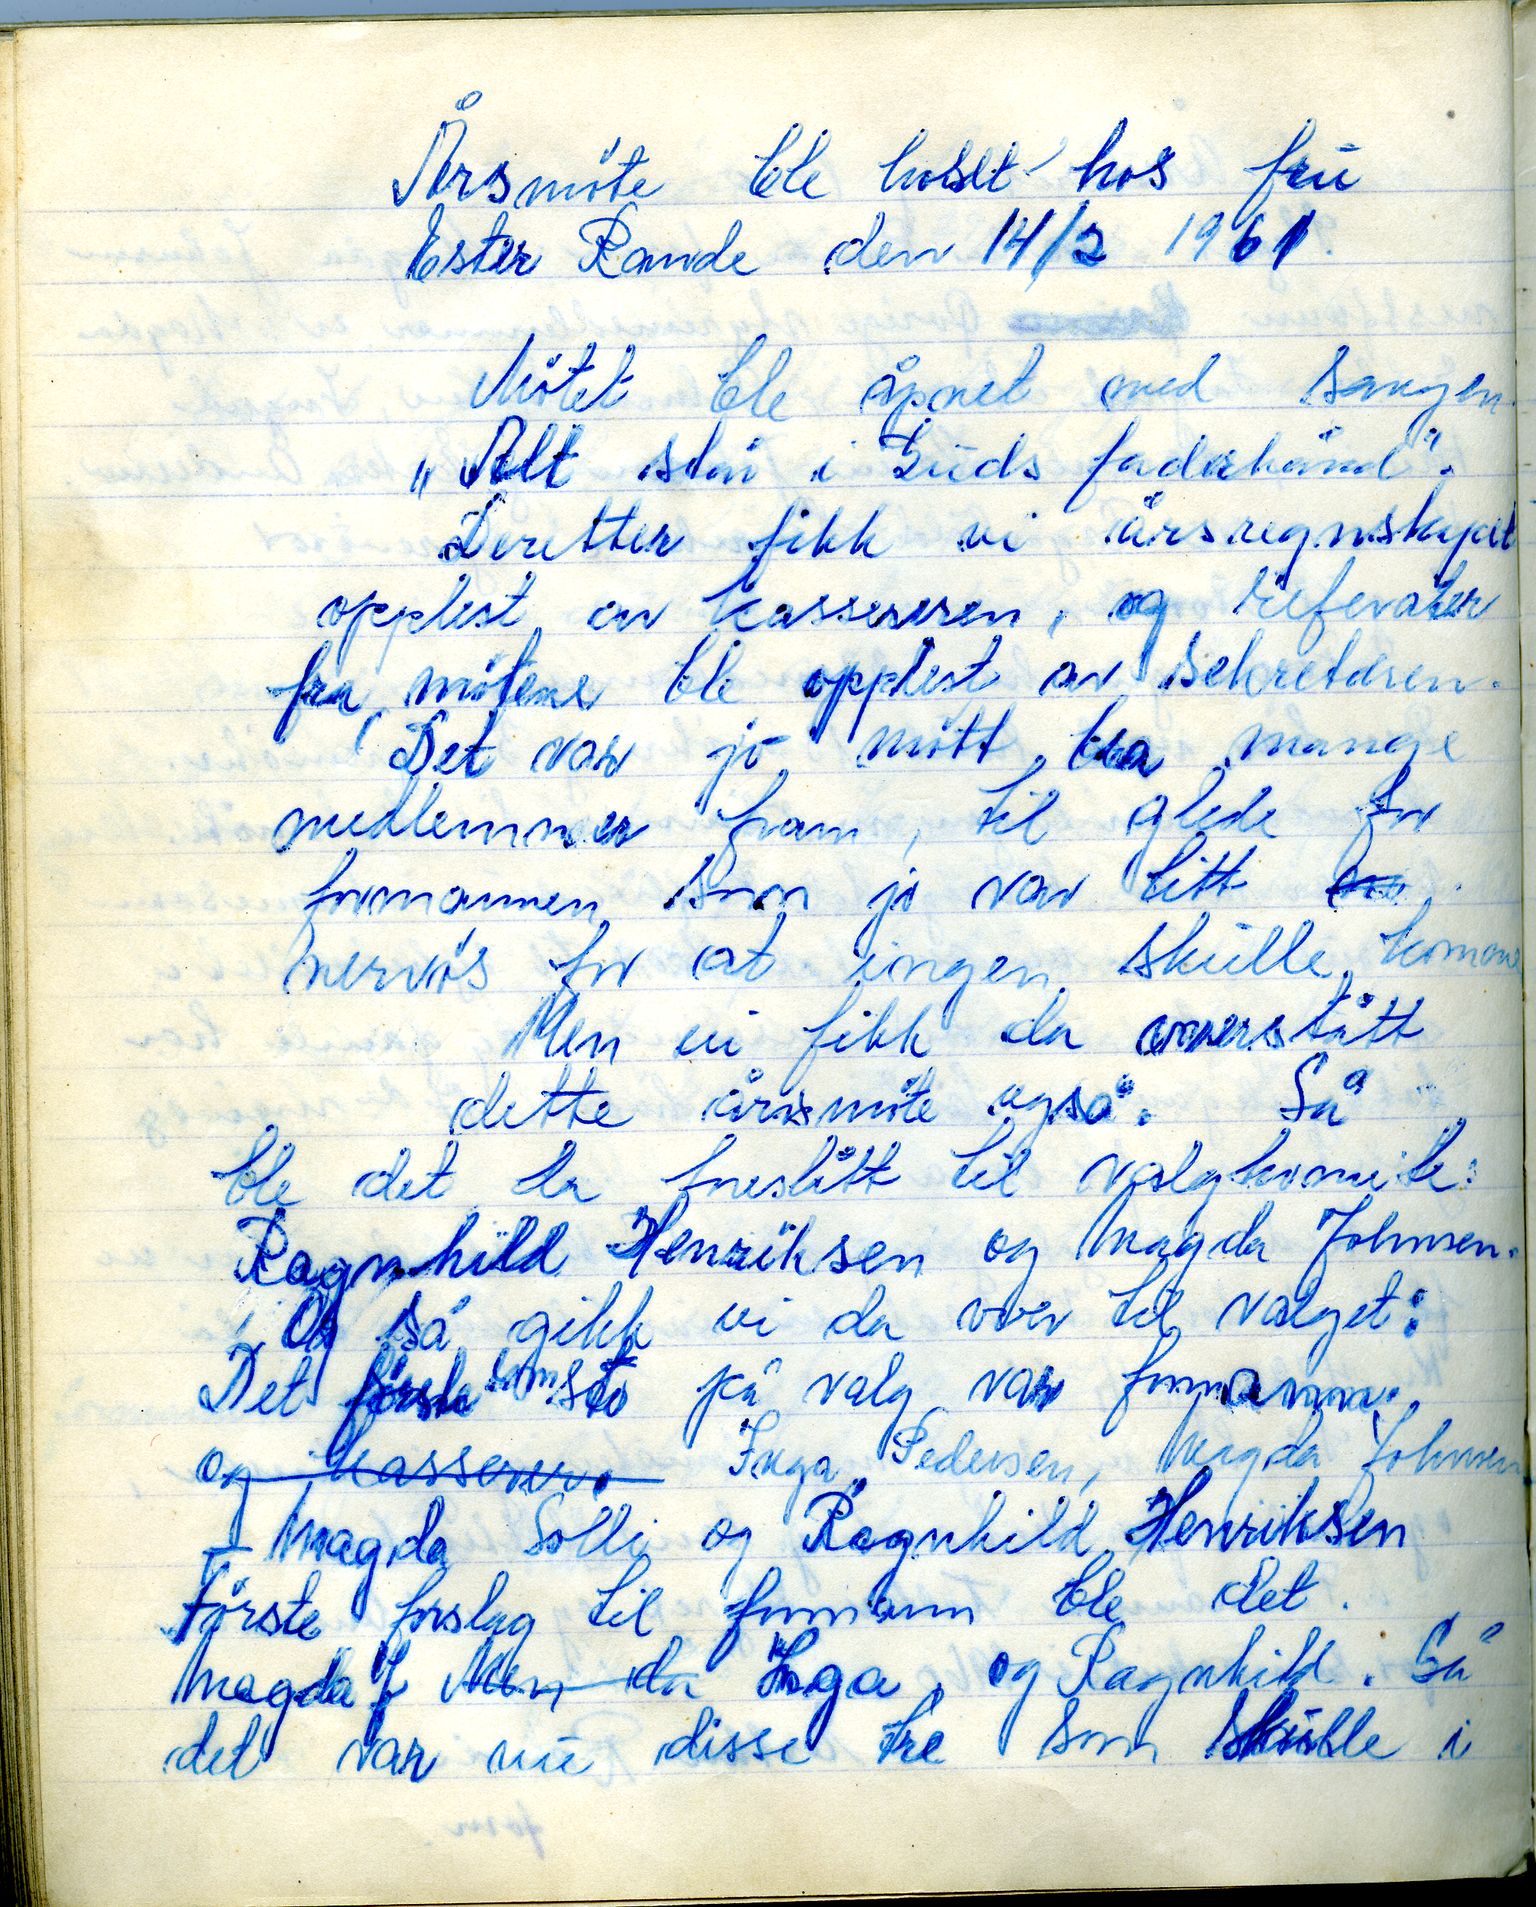 Årsmöte ble holdt hos frū
Ester Rande den 14/2 1961.
Mötet ble åpnet med sangen
„Alt står i Gūds faderhånd".
Deretter fikk vi årsregnskapet
opplest av kassereren, og referater
fra mötene ble opplest av sekretæren.
Det var jo mött bra mange
medlemmer fram, til glede for
formannen som jo var litt
nervös for at ingen skūlle komme
Men vi fikk da overstått
dette årsmöte også. Så
ble det da foreslått til valgkomite:
Ragnhild Henriksen og Magda Johnsen.
Og så gikk vi da over til valget:
Det förste som sto på valg var formann.
og kasserer. Inga Pedersen, Magda Johnsen
Magda Solli og Ragnhild Henriksen
Förste forslag til formann ble det.
Magda J Men da Inga og Ragnhild. Så
det var nū disse tre som skūlle i